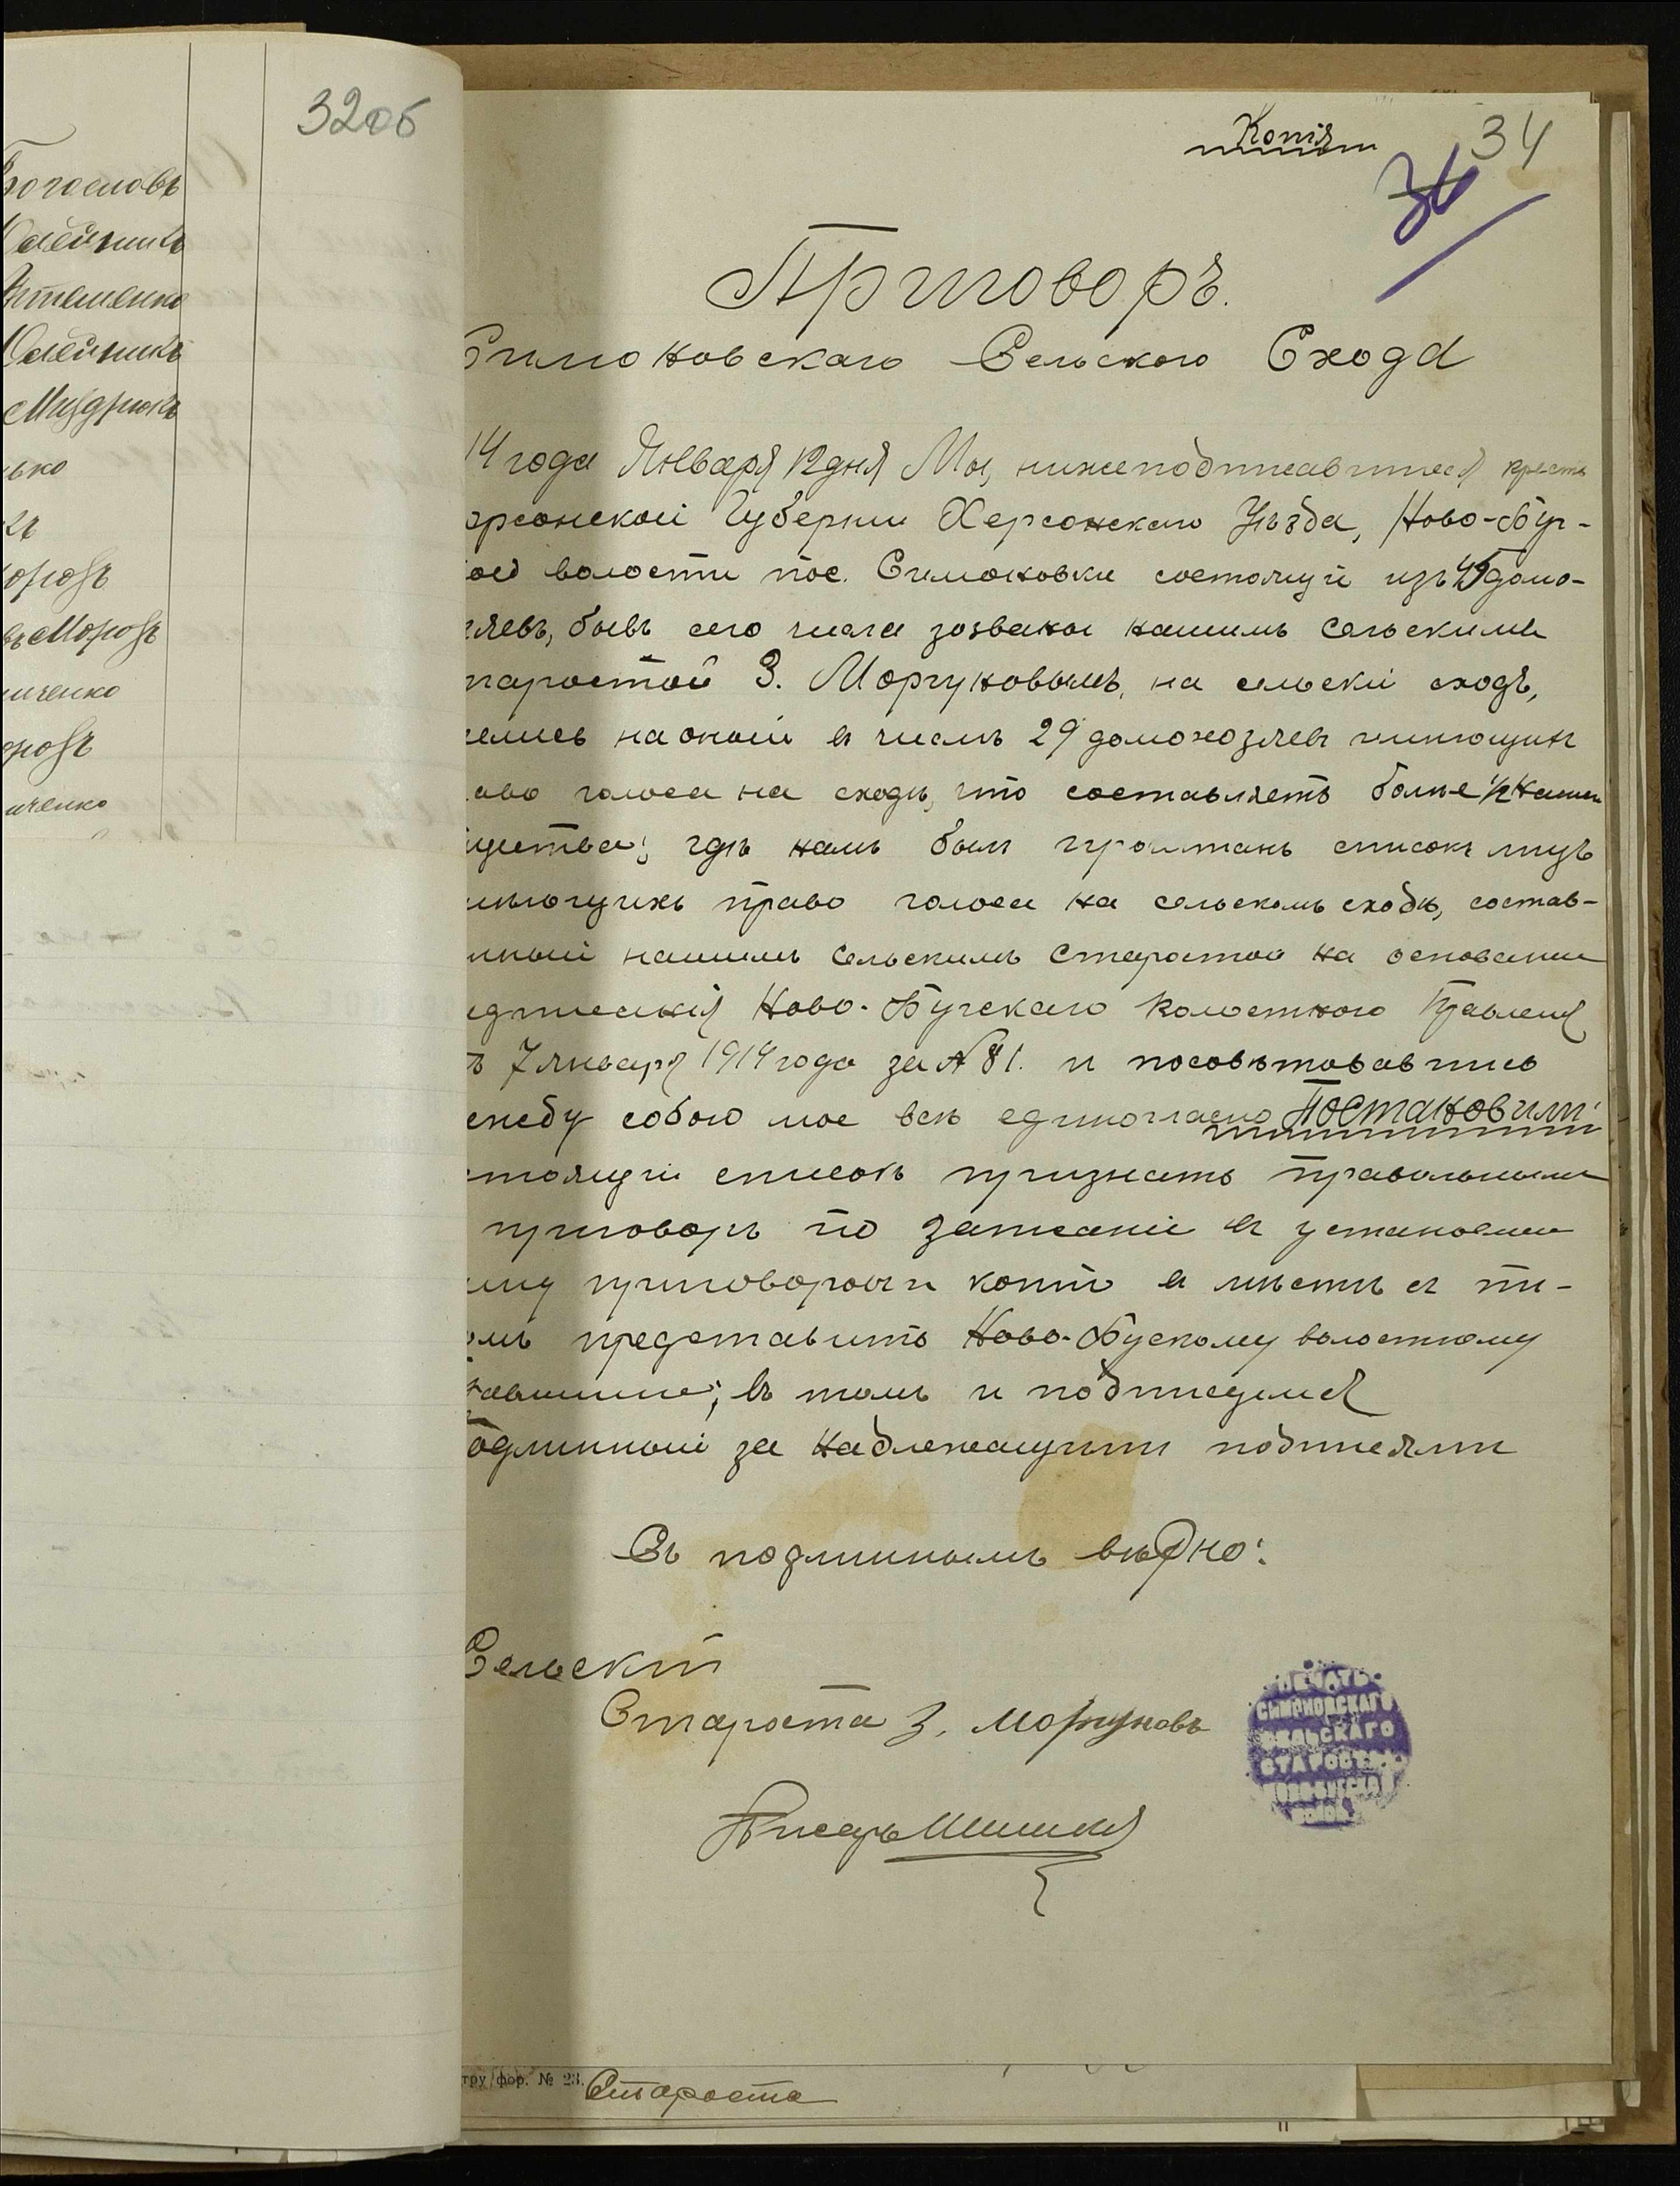 32об
Богословъ
Олейникъ
Олейникъ
Мудрюкъ
ько
орозъ
въ Морозъ
иченко
орозъ
иченко
Копія
34
Приговоръ.
Симоновскаго Сельского Схода
14 года Января 12 дня Мы, нижеподписавшиеся кресть
ерсонской Губерніи Херсонскаго Уѣзда, Ново-Буг-
ой волости пос. Симоновки состоящей изъ 45 домо-
зяевъ, бывъ сего числа созваны нашимъ Сельскимъ
таростой З. Моргуновымъ, на сельскій сходъ,
на оный въ числѣ 29 домохозяевъ имеющихъ
аво голоса на сходѣ, что составляетъ более 1/2 нашего
щества; гдѣ намъ был прочитанъ списокъ лицъ
имѣющихъ право голоса на сельскомъ сходѣ, состав-
нный нашимъ Сельскимъ Старостой на основании
едписанія Ново-Бугскаго Волостного Правленія
тъ 7 января 1914 года за № 81. и посовѣтовавшись
ежду собою мы всѣ единогласно Постановили:
стоящій список признать правильнымъ
приговоръ по записаніи въ установлен
копію вмѣстѣ съ
омъ представить Ново-Бускому волостному
равлению; въ томъ и подписуемся
одлинный за надлежащими подписями
Съ подлиннымъ вѣрно:
Сельскій
Староста З. Моргуновъ
Писарь
ПЕЧАТЬ
СИМОНОВСКАГО
СЕЛЬСКАГО
СТАРОСТЫ
тру фор. № 23.
Староста